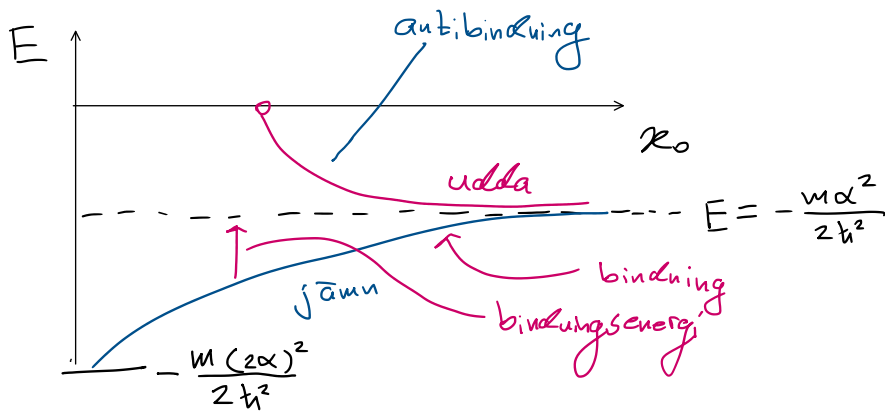 antibindning
E
x₀
udda
E = - mα²/2ħ²
bindning
jämn
bindningsenergi
- m(2α)²/2ħ²